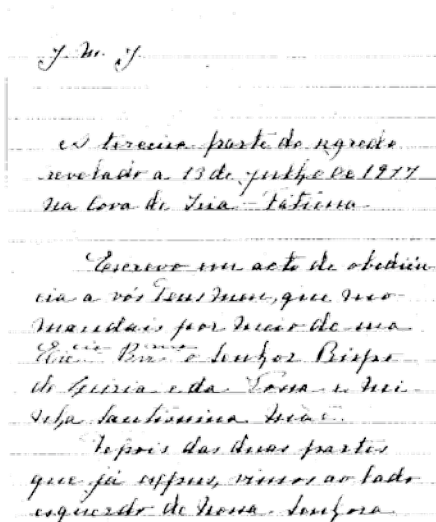 J. M. J.
A terceira parte do segredo
revelado a 13 de julho de 1917
na Cova de Iria – Fátima.
Escrevo em acto de obediên-
cia a vós Deus meu, que mo
mandais por meio de sua
Ex.cia Rev.ma o Senhor Bispo
de Leiria e da Vossa e mi-
nha Santíssima Mãe.
Depois das duas partes
que já expus, vimos ao lado
esquerdo de Nossa Senhora